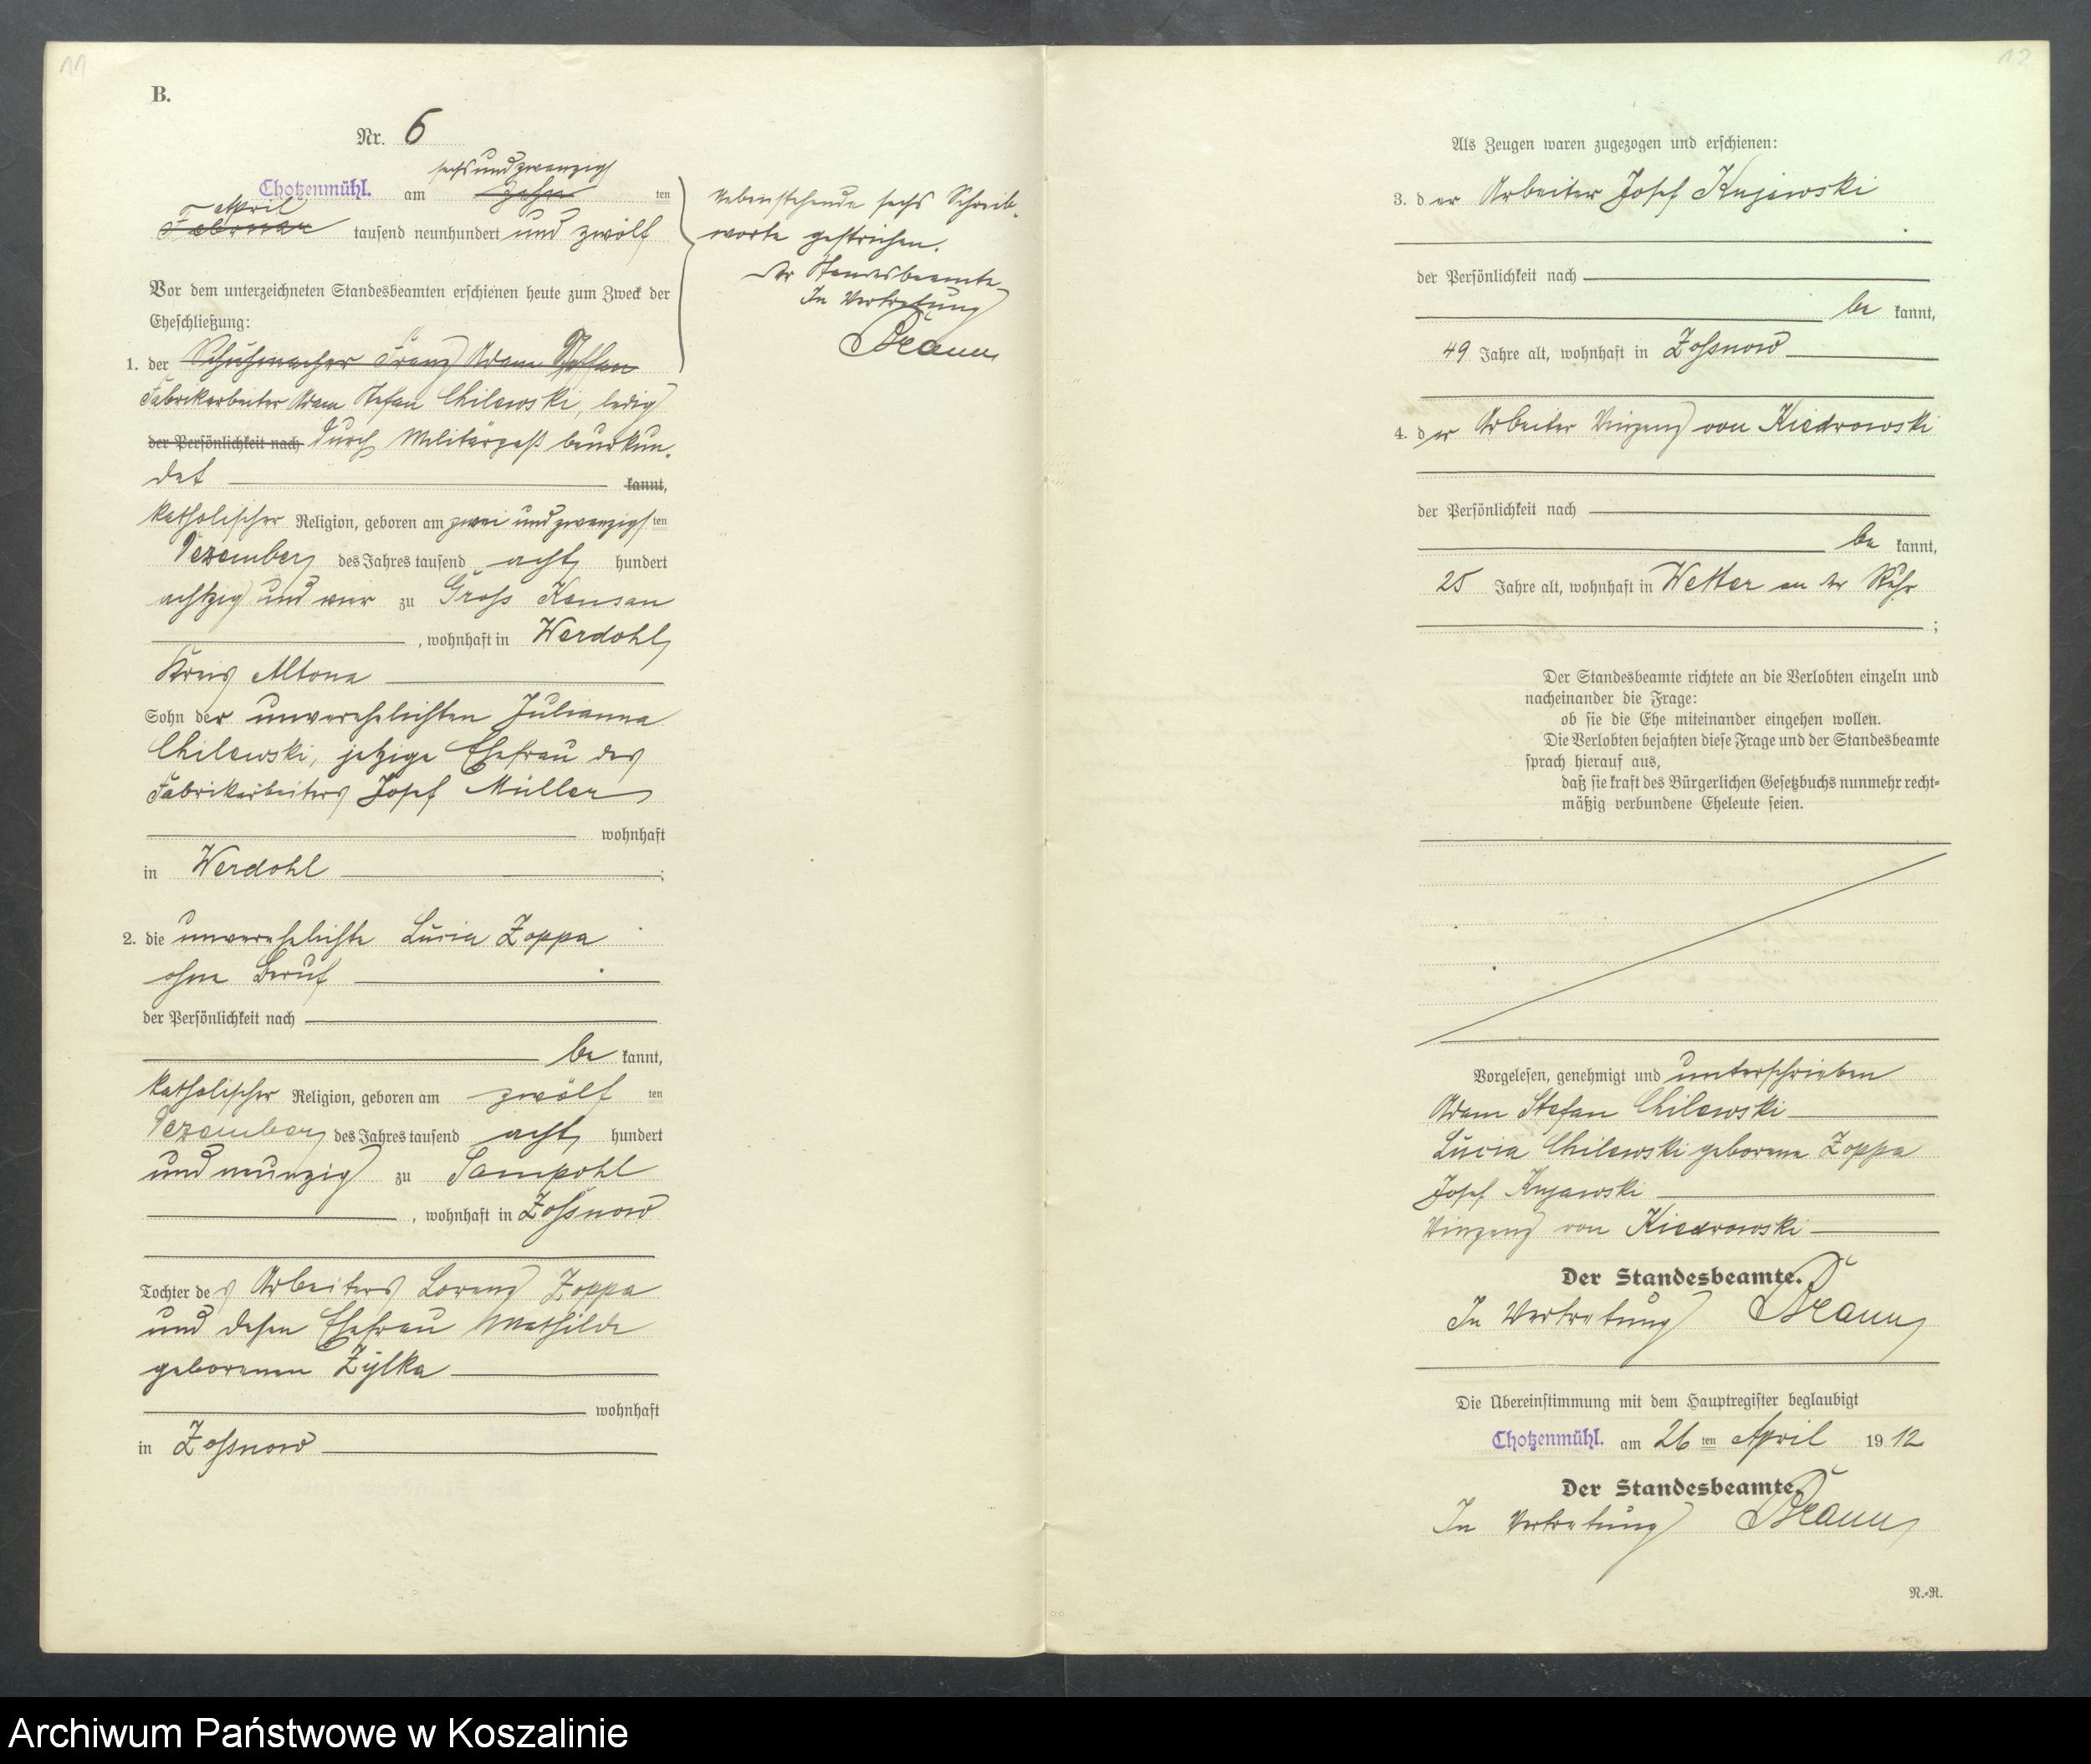 11
B.
Nr. 6
sechsundzwanzig
Chotzenmühl. am zehn ten
April
Februar tausend neunhundert und zwölf
Vor dem unterzeichneten Standesbeamten erschienen heute zum Zweck der
Eheschließung:
1. der Schuhmacher Franz Adam Stefan
Fabrikarbeiter Adam Stefan Chilewski, ledig
der Persönlichkeit nach durch Militärpaß beurkun-
det kannt,
katholischer Religion, geboren am zwei und zwanzigs ten
Dezember des Jahres tausend acht hundert
achtzig und vier zu Gross Konsan
, wohnhaft in Werdohl,
Kreis Altona
Sohn der unverehelichten Julianna
Chilewski, jetzige Ehefrau des
Fabrikarbeiters Josef Müller
wohnhaft
in Werdohl ;
2. die unverehelichte Lucia Zoppa
ohne Beruf
der Persönlichkeit nach
be kannt,
katholischer Religion, geboren am zwölf ten
Dezember des Jahres tausend acht hundert
und neunzig zu Sampohl
, wohnhaft in Zossnow
Tochter des Arbeiters Lorenz Zoppa
und dessen Ehefrau Mathilde
geborenen Zylka
wohnhaft
in Zossnow
Nebenstehende sechs Schreib-
worte gestrichen.
Der Standesbeamte
In Vertretung
Braun
12
Als Zeugen waren zugezogen und erschienen:
3. der Arbeiter Josef Kujawski
der Persönlichkeit nach
be kannt,
49 Jahre alt, wohnhaft in Zossnow
4. der Arbeiter Vinzenz von Kiedrowski
der Persönlichkeit nach
be kannt,
25 Jahre alt, wohnhaft in Wetter an der Ruhr
;
Der Standesbeamte richtete an die Verlobten einzeln und
nacheinander die Frage:
ob sie die Ehe miteinander eingehen wollen.
Die Verlobten bejahten diese Frage und der Standesbeamte
sprach hierauf aus,
daß sie kraft des Bürgerlichen Gesetzbuchs nunmehr recht-
mäßig verbundene Eheleute seien.
Vorgelesen, genehmigt und unterschrieben
Adam Stefan Chilewski
Lucia Chilewski geborene Zoppa
Josef Kujawski
Vinzenz von Kiedrowski
Der Standesbeamte.
In Vertretung Braun
Die Übereinstimmung mit dem Hauptregister beglaubigt
Chotzenmühl. am 26 ten April 1912
Der Standesbeamte.
In Vertretung Braun
N.-R.
Archiwum Państwowe w Koszalinie